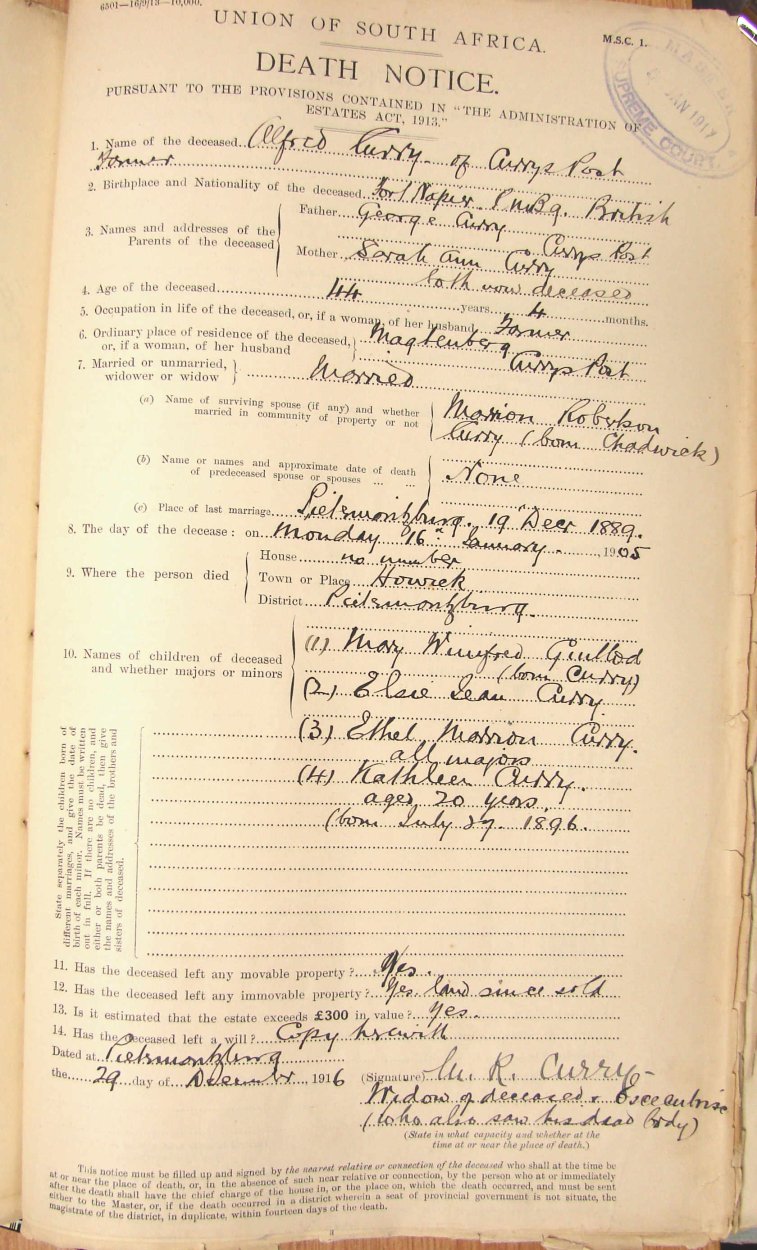 6501—16/9/13—10,000.
UNION OF SOUTH AFRICA.
M.S.C. 1.
DEATH NOTICE.
PURSUANT TO THE PROVISIONS CONTAINED IN "THE ADMINISTRATION OF
ESTATES ACT, 1913."
MASTER
JAN 1917
SUPREME COURT
1. Name of the deceased Alfred Curry of Currys Post
Farmer
2. Birthplace and Nationality of the deceased Fort Napier PMBg. British
3. Names and addresses of the Parents of the deceased
Father George Curry
Currys Post
Mother Sarah Ann Curry
both now deceased
4. Age of the deceased 44 years 4 months.
5. Occupation in life of the deceased, or, if a woman, of her husband Farmer
6. Ordinary place of residence of the deceased, or, if a woman, of her husband
Magtenberg
Currys Post
7. Married or unmarried, widower or widow
Married
(a) Name of surviving spouse (if any) and whether married in community of property or not
Marrion Robertson
Curry (born Chadwick)
(b) Name or names and approximate date of death of predeceased spouse or spouses ... ...
None
(c) Place of last marriage Pietermaritzburg, 19 Decr 1889.
8. The day of the decease: on Monday 16th January, 1905
9. Where the person died
House no number
Town or Place Howick
District Pietermaritzburg
10. Names of children of deceased and whether majors or minors
(1) Mary Winifred
(born Curry)
(2) Elsie Jean Curry
(3) Ethel Marrion Curry.
all majors
(4) Kathleen Curry.
aged 20 years.
(born July 29 1896.
State separately the children born of
different marriages, and give the date of
birth of each minor. Names must be written
out in full. If there are no children, and
either or both parents be dead, then give
the names and addresses of the brothers and
sisters of deceased.
11. Has the deceased left any movable property? Yes.
12. Has the deceased left any immovable property? Yes, land since sold
13. Is it estimated that the estate exceeds £300 in value? Yes.
14. Has the deceased left a will? Copy herewith
Dated at Pietermaritzburg
the 29 day of December 1916
(Signature) M. R. Curry
Widow of deceased & Executrix
(who also saw his dead body)
(State in what capacity and whether at the
time at or near the place of death.)
This notice must be filled up and signed by the nearest relative or connection of the deceased who shall at the time be
at or near the place of death, or, in the absence of such near relative or connection, by the person who at or immediately
after the death shall have the chief charge of the house in, or the place on, which the death occurred, and must be sent
either to the Master, or, if the death occurred in a district wherein a seat of provincial government is not situate, the
magistrate of the district, in duplicate, within fourteen days of the death.